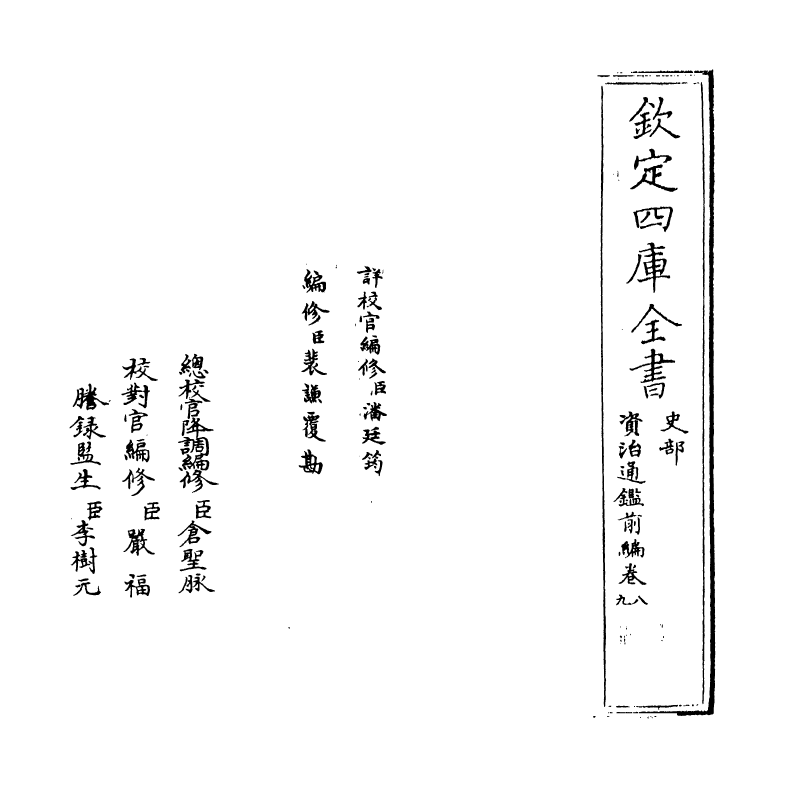 欽定四庫全書
史部
資治通鑑前編卷八
九
詳校官編修臣潘廷筠
編修臣裴謙覆勘
總校官降調編修臣倉聖脉
校對官編修臣嚴福
謄錄監生臣李樹元